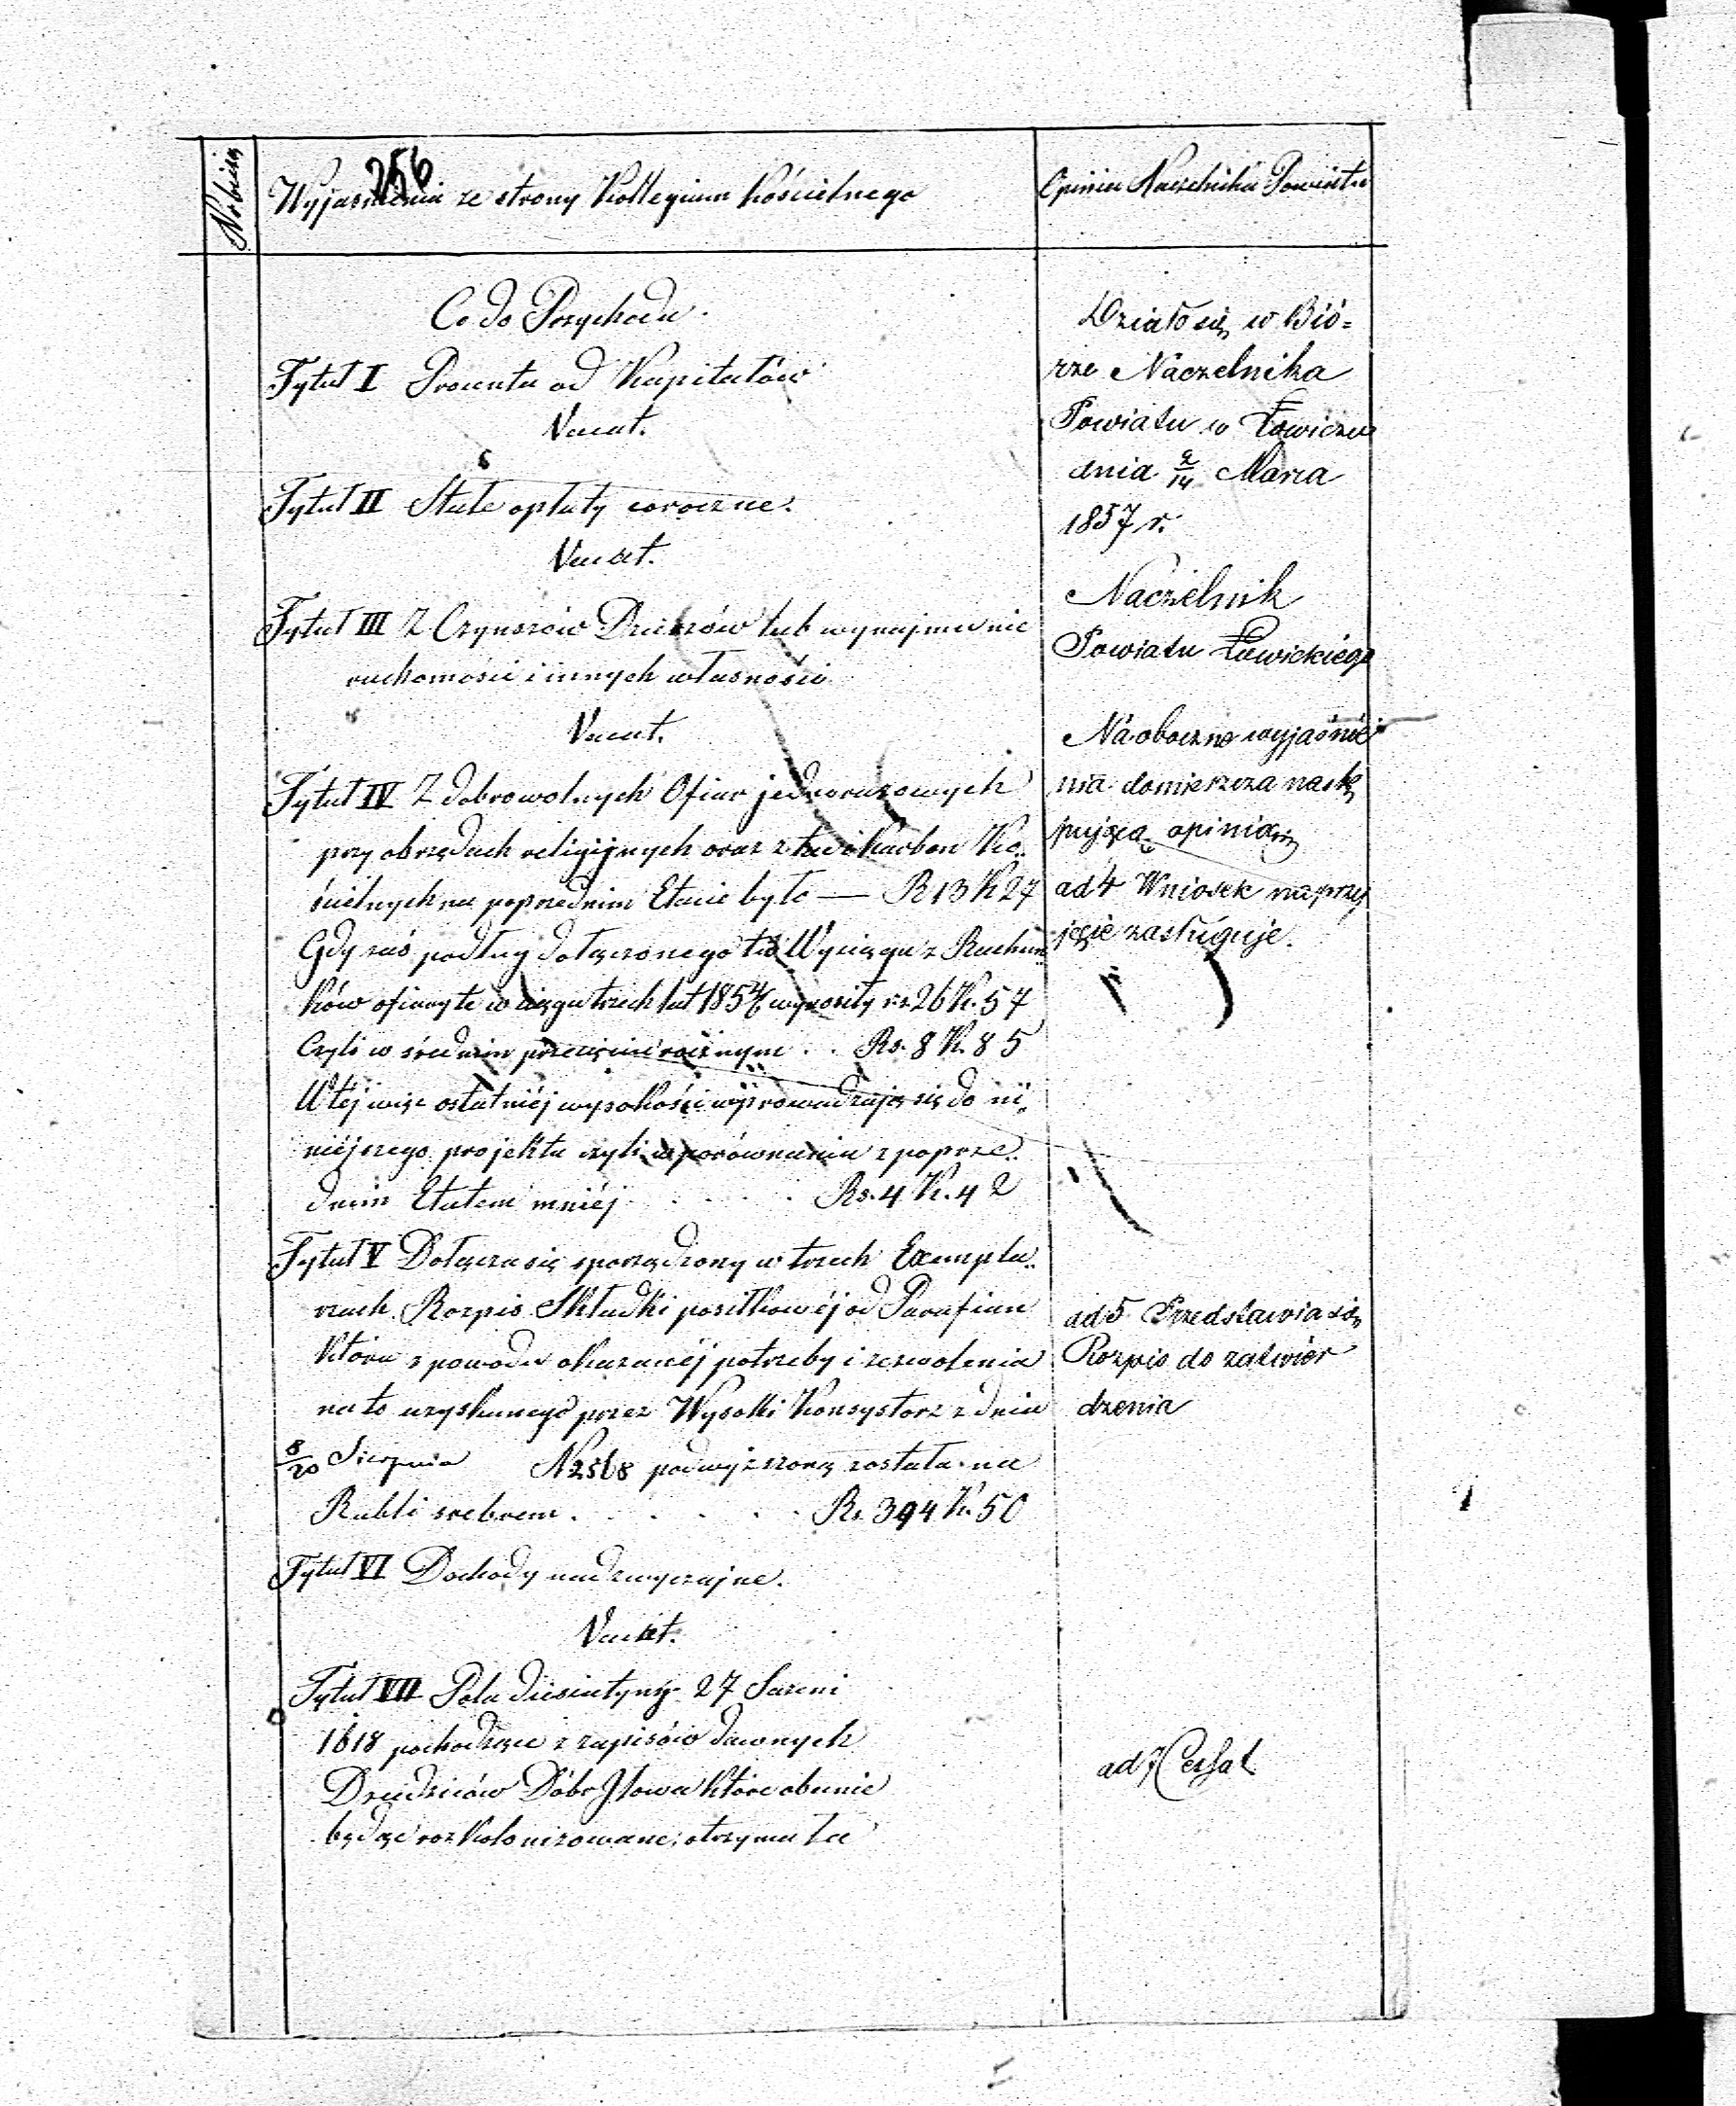 256
No bieżą
Wyjaśnienia ze strony Kollegium Kościelnego
Opinia Naczelnika Powiatu
Co do Przychodu.
Tytuł I Procenta od Kapitałów
Vacat.
Tytuł II Stałe opłaty coroczne.
Vacat.
Tytuł III Z Czynszów Dzierżów lub wynajmu nie
ruchomości i innych własności
Vacat.
Tytuł IV Z dobrowolnych Ofiar jednorazowych
przy obrzędach religijnych oraz z tac i Karbon Ko„
ścielnych na poprzednim Etacie było — R 13 K 27
Gdy zaś podług dołączonego tu Wyciągu z Rachun„
ków ofiary te w ciągu trzech lat 1854/6 wynosiły rs. 26 K. 57
Czyli w średnim przecięciu rocznym . . Rs. 8 K. 85
W tej więc ostatniéj wysokości wprowadzają się do ni„
niéjszego projektu czyli w porównaniu z poprze„
dnim Etatem mniéj . . . . Rs. 4 K. 42
Tytuł V Dołącza się sporządzony w trzech Exempla„
rzach Rozpis Składki posiłkowéj od Parafian
Która z powodu okazanéj potrzeby i zezwolenia
na to uzyskanego przez Wysoki Konsystorz z dnia
8/20 Sierpnia N 2568 podwyższoną została na
Rubli srebrem . . . . . Rs. 394 K. 50
Tytuł VI Dochody nadzwyczajne.
Vacat.
Tytuł VII Pola diesiatyny 27 Sażeni
1618 pochodzące z zapisów dawnych
Dziedziców Dóbr Iłowa które obecnie
będąc rozkolonizowane; otrzymała
Działo się w Bió=
rze Naczelnika
Powiatu w Łowiczu
dnia 2/14 Marca
1857 r.
Naczelnik
Powiatu Łowickiégo
Na oboczne wyjaśnie
nia domieszcza nastę
pującą opinią
ad 4 Wniosek na przy
jęcie zasługuje.
ad 5 Przedstawia się
Rozpis do zatwier
dzenia
ad 7 Cessat